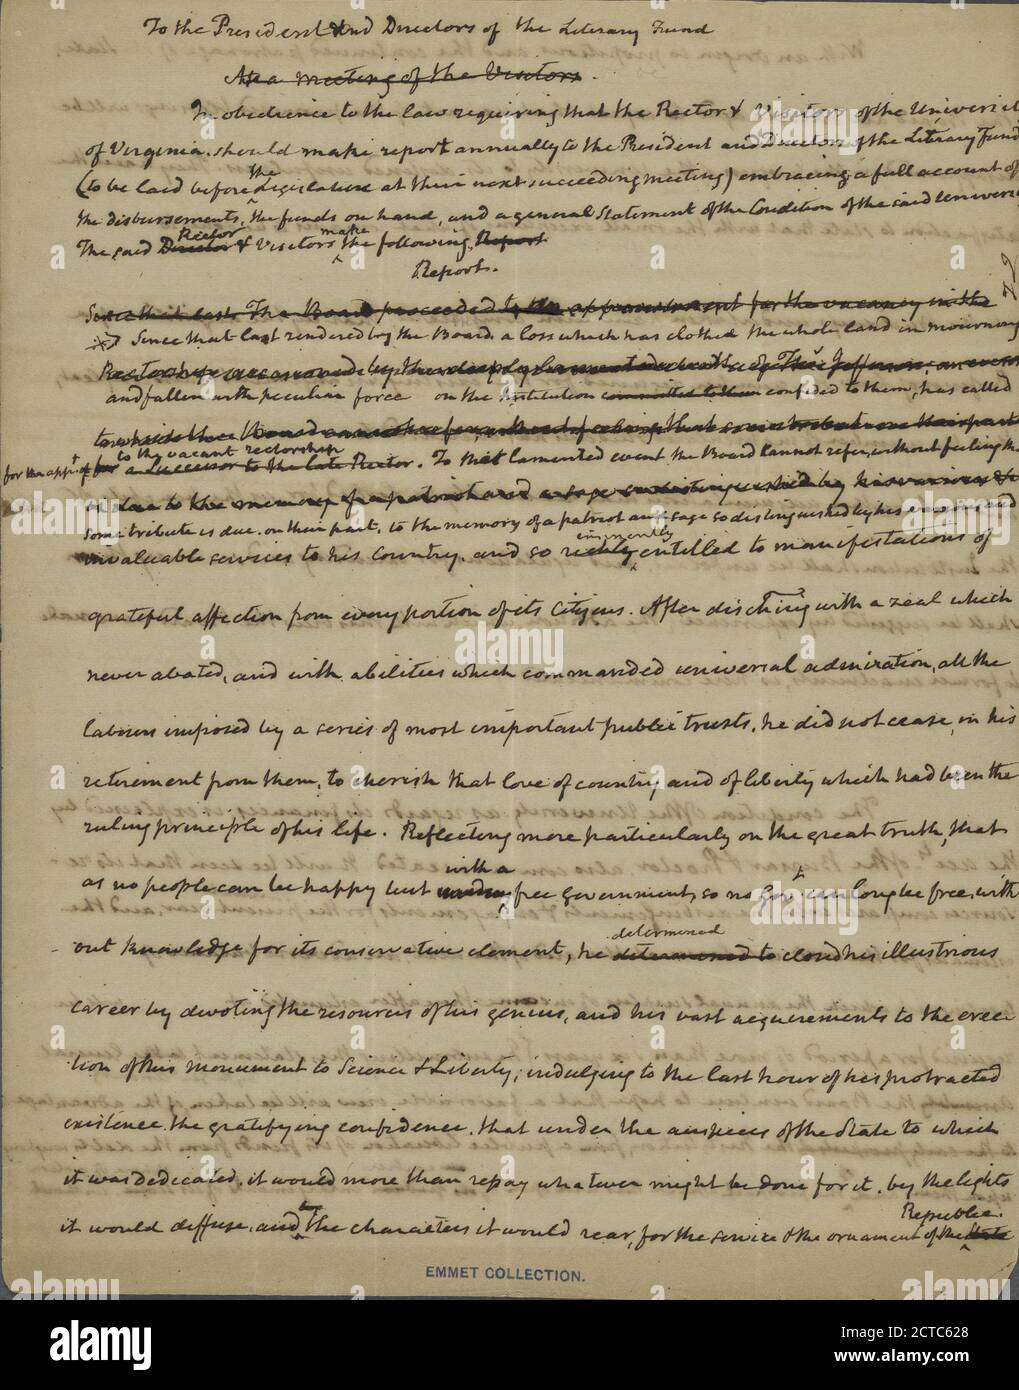 To the President and Directors of the Literary Fund
At a meeting of the Visitors.
In obedience to the law requiring that the Rector & Visitors of the Universit
of Virginia should make report annually to the President and Directors of the Literary Fund
(to be laid before the Legislature at their next succeeding meeting) embracing a full account of
the disbursements, the funds on hand, and a general Statement of the Condition of the said Univers
The said Director Rector & Visitors make the following Report
Report.
Since that last The Board proceeded to appointment for the vacancy in the
Since that last rendered by the Board a loss which has clothed the whole land in mourning
Rectorship occasioned by the deeply lamented death of Ths Jefferson, an event
and fallen with peculiar force on the Institution committed to them confided to them, has called
to which the Board cannot refer, without feeling that some tribute on their part
to the vacant rectorship
for the appt of for a successor to the late Rector. To that lamented event the Board cannot refer, without feeling the
is due to the memory of a patriot and a sage so distinguished by his various &
some tribute is due, on their part, to the memory of a patriot and sage so distinguished by his
invaluable services to his Country, and so richly eminently entitled to manifestations of
grateful affection from every portion of its Citizens. After dischging with a zeal which
never abated, and with abilities which commanded universal admiration, all the
labours imposed by a series of most important public trusts, he did not cease, in his
retirement from them, to cherish that love of country and of liberty which had been the
ruling principle of his life. Reflecting more particularly on the great truth, that
as no people can be happy but with a free Government, so no Govt can long be free, with
out knowledge for its conservative element, he determined determined to close his illustrious
career by devoting the resources of his genius, and his vast acquirements to the erec
tion of this monument to Science & Liberty; indulging to the last hour of his protracted
existence, the gratifying confidence, that under the auspices of the State to which
it was dedicated, it would more than repay whatever might be done for it, by the lights
it would diffuse, and the characters it would rear, for the service & the ornament of the State Republic.
EMMET COLLECTION.
alamy
alamy
Image ID: 2CTC628
www.alamy.com